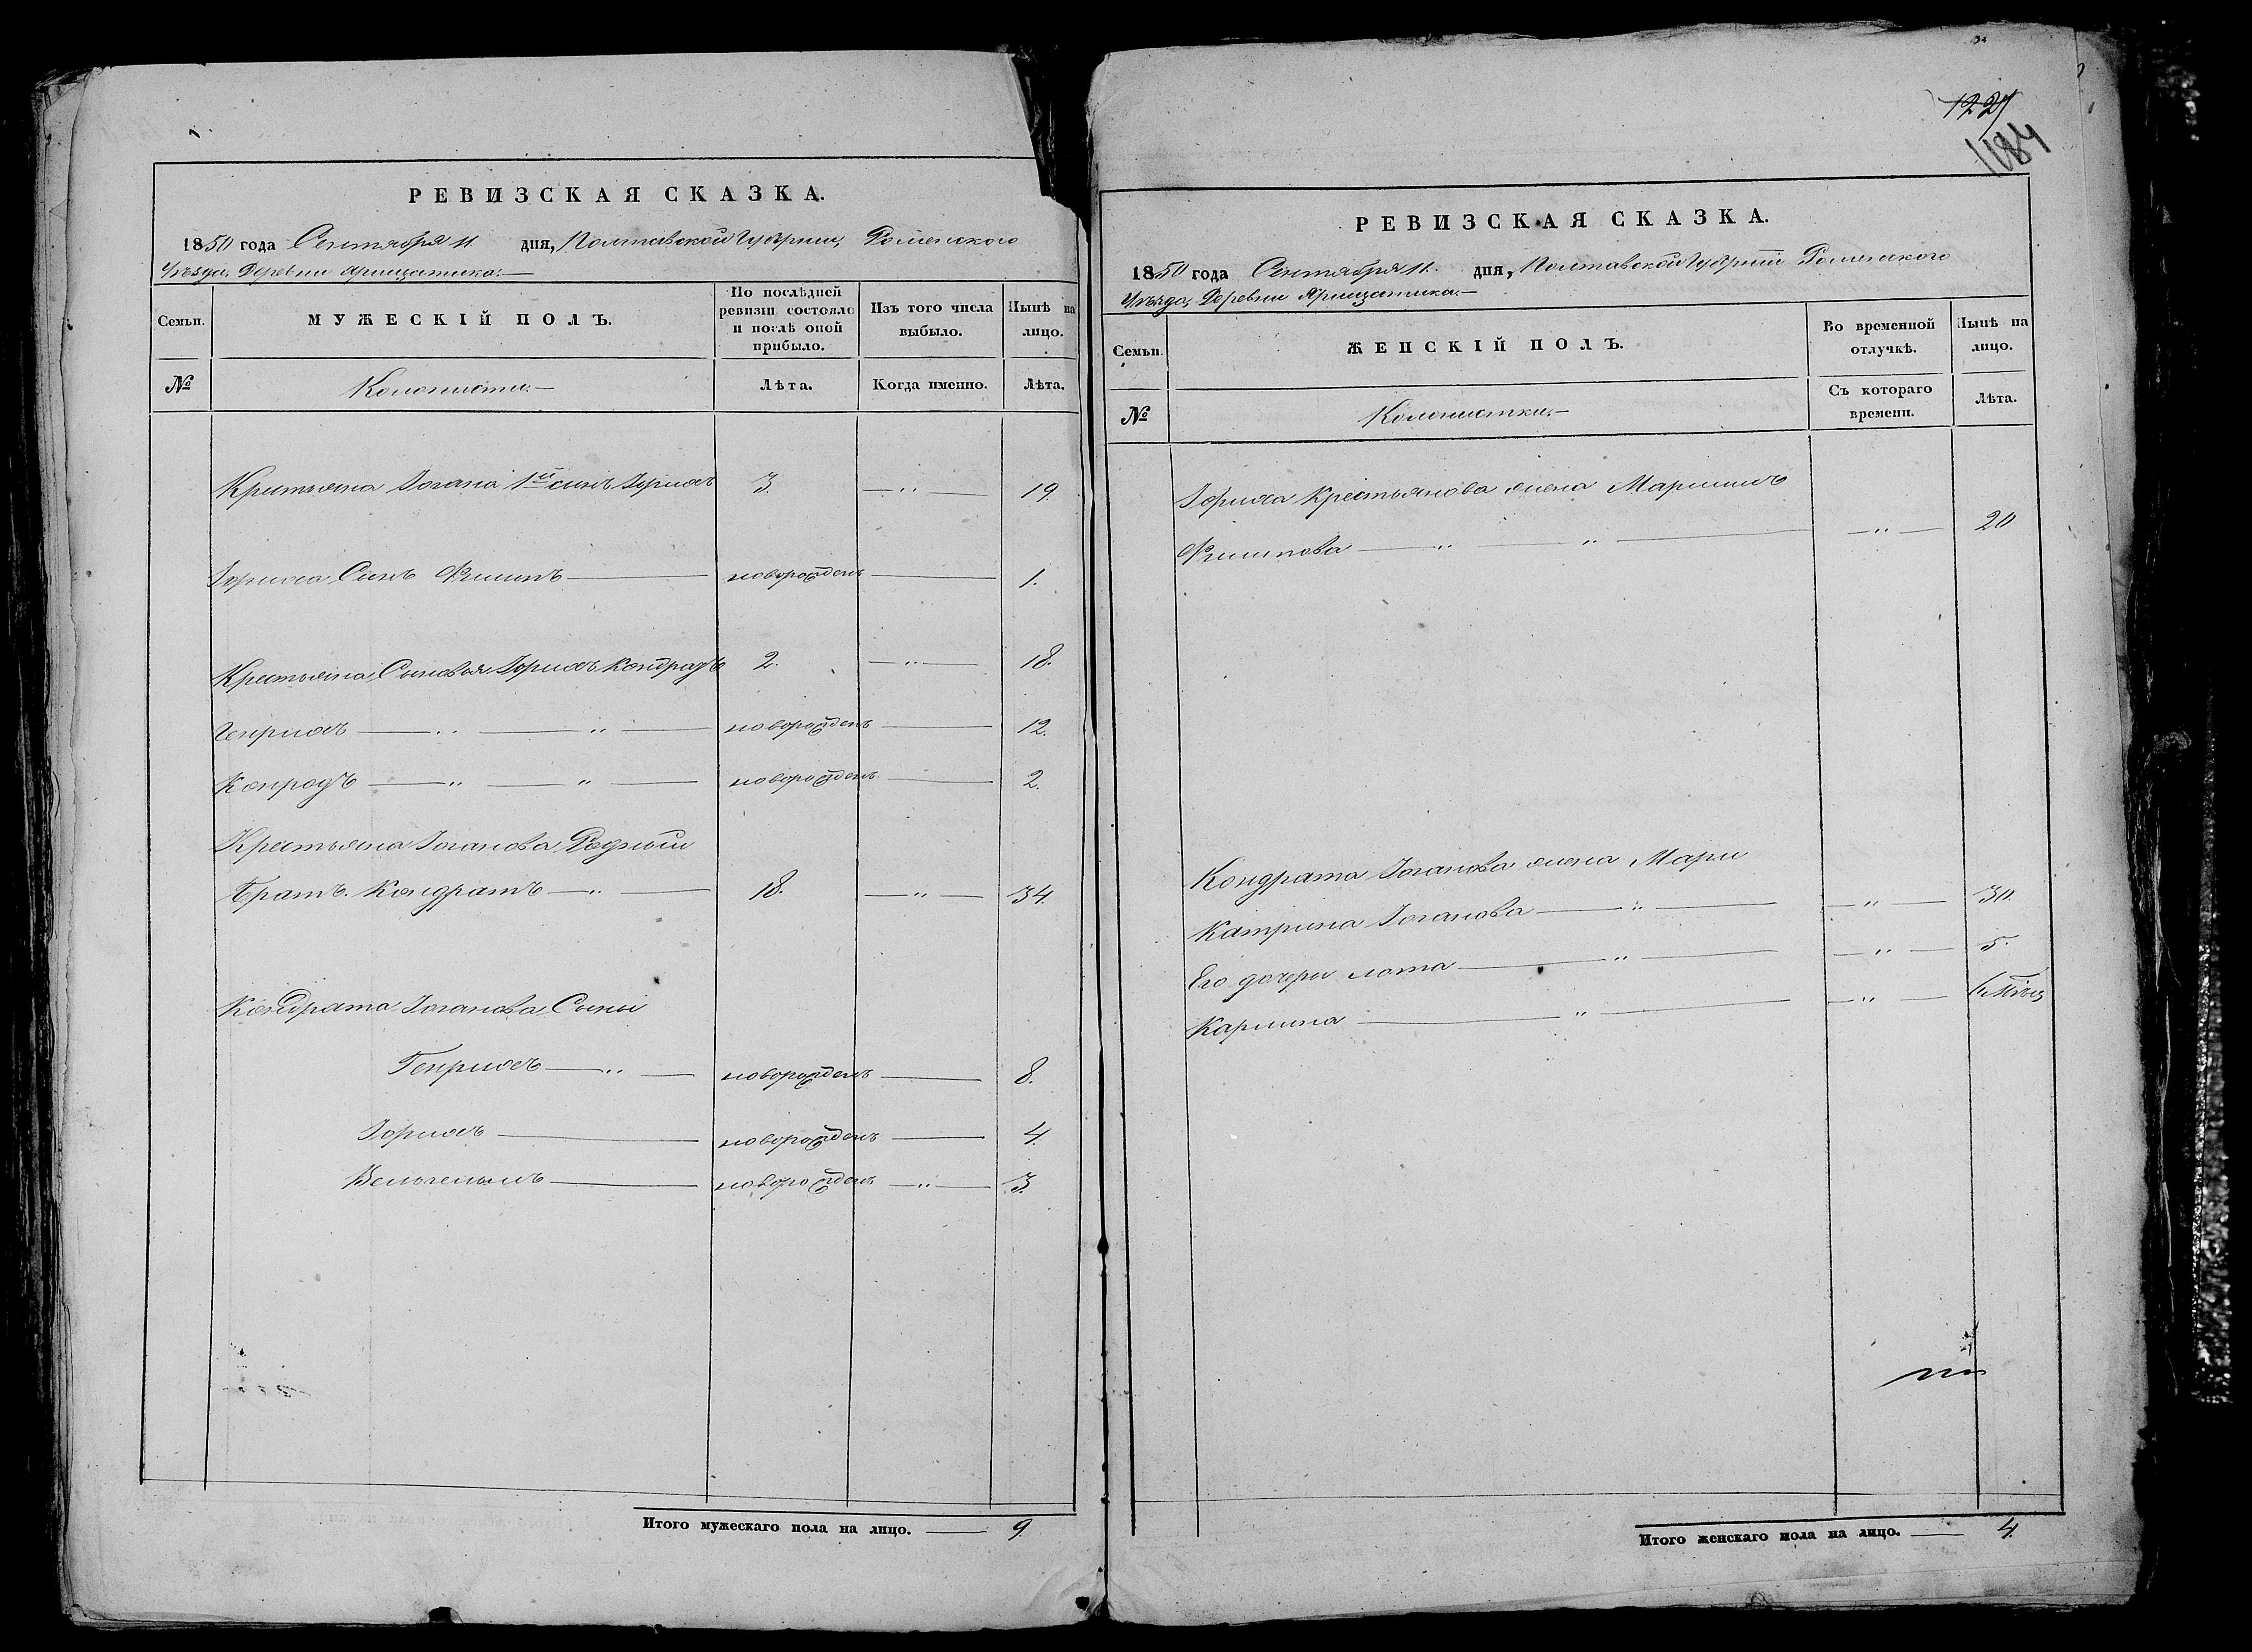 РЕВИЗСКАЯ СКАЗКА.
1850 года Сентября 11. дня, Полтавской Губерніи, Роменского
Уѣзда, Деревни
Семьи.
МУЖЕСКІЙ ПОЛЪ.
По послѣдней ревизіи состояло и послѣ оной прибыло.
Изъ того числа выбыло.
Нынѣ на лицо.
№
Колонисты.—
Лѣта.
Когда именно.
Лѣта.
Крестьяна Іогана 1й сынъ Іорихъ 3. — " — 19.
Іориха Сынъ Филипъ — новорожденъ — 1.
Крестьяна Сыновья Іорихъ Кондрадъ 2. — " — 18.
Генрихъ — " — " — новорожденъ — 12.
Конродъ — " — " — новорожденъ — 2.
Крестьяна Іоганова Родный
Братъ. Кондратъ — " — 18. — " — 34.
Кондрата Іоганова Сыны
Генрихъ — " — новорожденъ — 8.
Іорихъ — новорожденъ — 4.
Вельгельмъ — новорожденъ — " — 3.
Итого мужескаго пола на лицо. — 9.
1227
1184
РЕВИЗСКАЯ СКАЗКА.
1850 года Сентября 11. дня, Полтавской Губерніи Роменского
Уѣзда, Деревни
Семьи.
ЖЕНСКІЙ ПОЛЪ.
Во временной отлучкѣ.
Нынѣ на лицо.
№
Колонистки.—
Съ котораго времени.
Лѣта.
Іориха Крестьянова жена
Филипова — " — " — — " — 20
Кондрата Іоганова жена Мари
Катрина Іоганова — " — — " — 30.
Его дочери Лота — " — — " — 5.
Каролина — " — — " —
Итого женскаго пола на лицо. — 4.